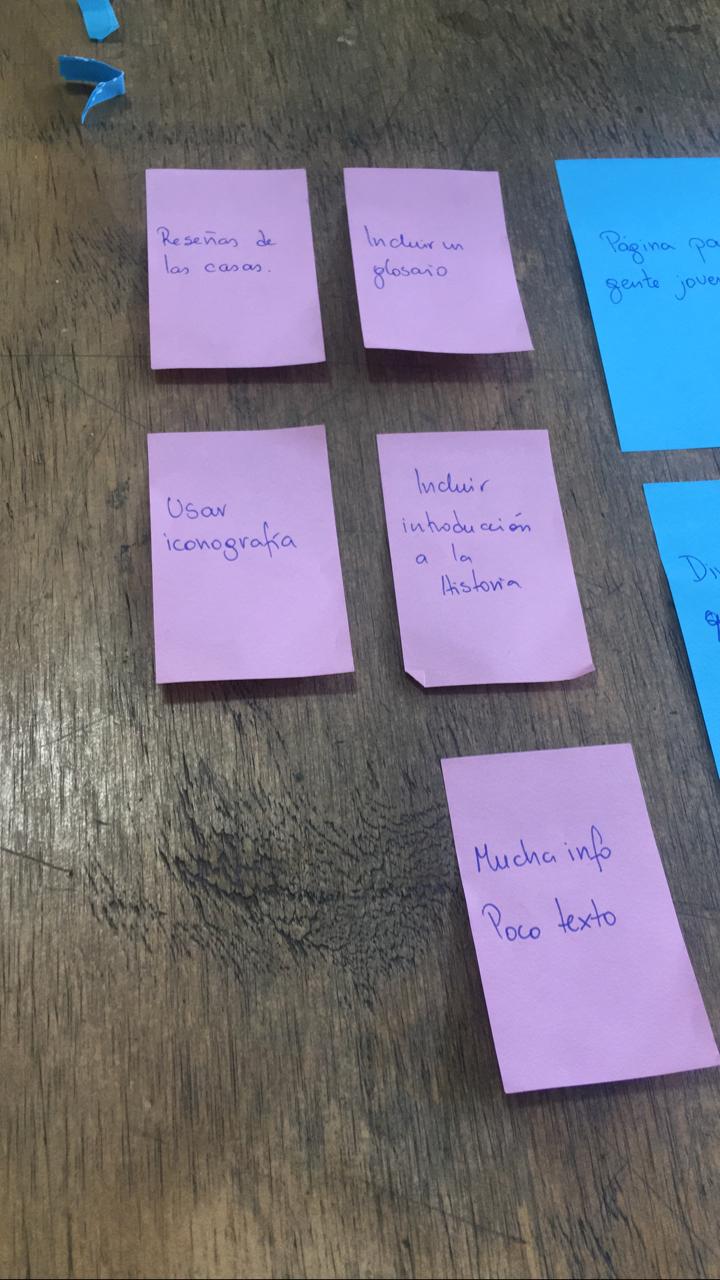 Reseñas de
las casas.
Incluir un
glosario
Página pa
gente jove
Usar
iconografía
Incluir
introducción
a la
Historia
Di
Mucha info
Poco texto